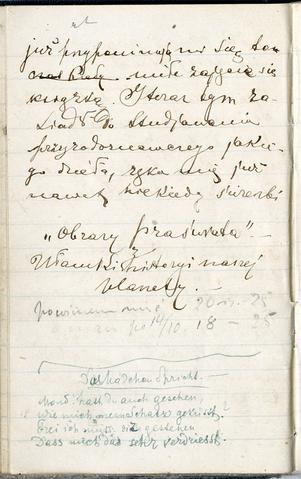 już przypominają mi się tam
miłe zajęcie się
książką. I teraz tym za-
siadł do studjowania
przyrodoznawczego jakie-
go dzieła, ręka mię już
nawet niekiedy świerzbi
„Obrazy Praświata” –
Ułamki historyi naszej
planety. –
powinien mieć 20 25
14/10. 18 – 25
Das Mädchen Spricht. –
Mond, hast du auch gesehen,
Wie mich mein Schatz geküsst?
Frei ich muss dir gestehen
Dass mich das sehr verdriesst.